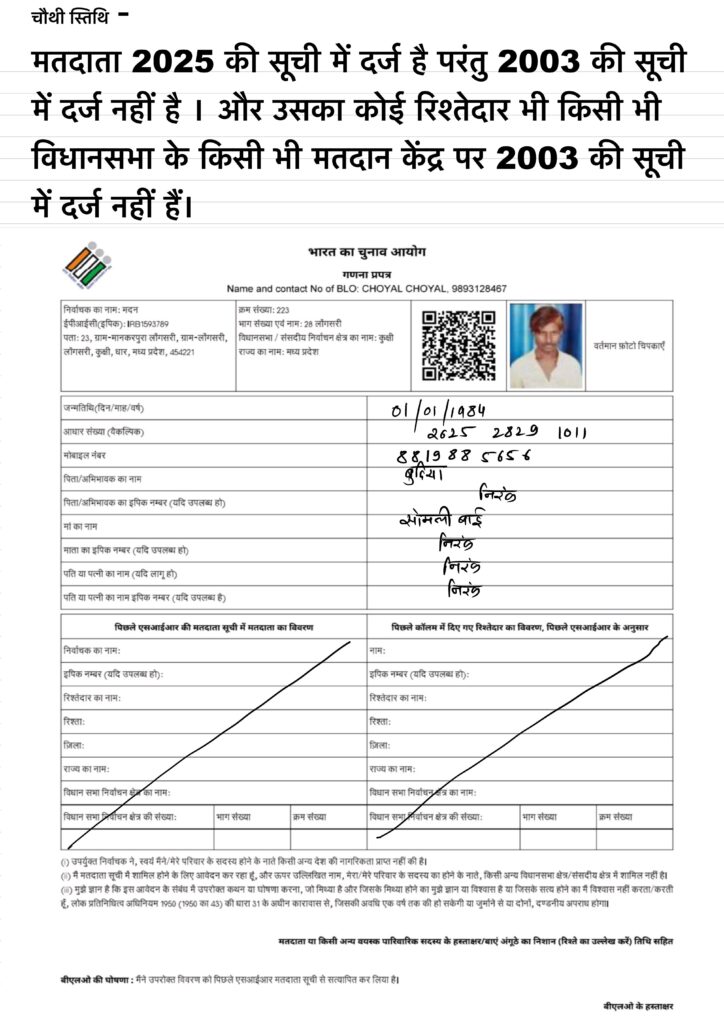 चौथी स्तिथि -
मतदाता 2025 की सूची में दर्ज है परंतु 2003 की सूची
में दर्ज नहीं है । और उसका कोई रिश्तेदार भी किसी भी
विधानसभा के किसी भी मतदान केंद्र पर 2003 की सूची
में दर्ज नहीं हैं।
भारत का चुनाव आयोग
गणना प्रपत्र
Name and contact No of BLO: CHOYAL CHOYAL, 9893128467
निर्वाचक का नाम: मदन
ईपीआईसी(इपिक): IRB1593789
पता: 23, ग्राम-मानकरपुरा लोंगसरी, ग्राम-लोंगसरी,
लोंगसरी, कुक्षी, धार, मध्य प्रदेश, 454221
क्रम संख्या: 223
भाग संख्या एवं नाम: 28 लोंगसरी
विधानसभा / संसदीय निर्वाचन क्षेत्र का नाम: कुक्षी
राज्य का नाम: मध्य प्रदेश
वर्तमान फ़ोटो चिपकाएँ
जन्मतिथि(दिन/माह/वर्ष) 01/01/1984
आधार संख्या (वैकल्पिक) 2625 2829 1011
मोबाइल नंबर 88198 85656
पिता/अभिभावक का नाम बुदिया
पिता/अभिभावक का इपिक नम्बर (यदि उपलब्ध हो) निरंक
मां का नाम सोमली बाई
माता का इपिक नम्बर (यदि उपलब्ध हो) निरंक
पति या पत्नी का नाम (यदि लागू हो) निरंक
पति या पत्नी का नाम इपिक नम्बर (यदि उपलब्ध है) निरंक
पिछले एसआईआर की मतदाता सूची में मतदाता का विवरण
पिछले कॉलम में दिए गए रिश्तेदार का विवरण, पिछले एसआईआर के अनुसार
निर्वाचक का नाम: नाम:
इपिक नम्बर (यदि उपलब्ध हो): इपिक नम्बर (यदि उपलब्ध हो):
रिश्तेदार का नाम: रिश्तेदार का नाम:
रिश्ता: रिश्ता:
ज़िला: ज़िला:
राज्य का नाम: राज्य का नाम:
विधान सभा निर्वाचन क्षेत्र का नाम: विधान सभा निर्वाचन क्षेत्र का नाम:
विधान सभा निर्वाचन क्षेत्र की संख्या: भाग संख्या क्रम संख्या विधान सभा निर्वाचन क्षेत्र की संख्या: भाग संख्या क्रम संख्या
(i) उपर्युक्त निर्वाचक ने, स्वयं मैंने/मेरे परिवार के सदस्य होने के नाते किसी अन्य देश की नागरिकता प्राप्त नहीं की है।
(ii) मैं मतदाता सूची में शामिल होने के लिए आवेदन कर रहा हूं, और ऊपर उल्लिखित नाम, मेरा/मेरे परिवार के सदस्य का होने के नाते, किसी अन्य विधानसभा क्षेत्र/संसदीय क्षेत्र में शामिल नहीं है।
(iii) मुझे ज्ञान है कि इस आवेदन के संबंध में उपरोक्त कथन या घोषणा करना, जो मिथ्या है और जिसके मिथ्या होने का मुझे ज्ञान या विश्वास है या जिसके सत्य होने का मैं विश्वास नहीं करता/करती
हूँ, लोक प्रतिनिधित्व अधिनियम 1950 (1950 का 43) की धारा 31 के अधीन कारावास से, जिसकी अवधि एक वर्ष तक की हो सकेगी या जुर्माने से या दोनों, दण्डनीय अपराध होगा।
मतदाता या किसी अन्य वयस्क पारिवारिक सदस्य के हस्ताक्षर/बाएं अंगूठे का निशान (रिश्ते का उल्लेख करें) तिथि सहित
बीएलओ की घोषणा : मैंने उपरोक्त विवरण को पिछले एसआईआर मतदाता सूची से सत्यापित कर लिया है।
बीएलओ के हस्ताक्षर